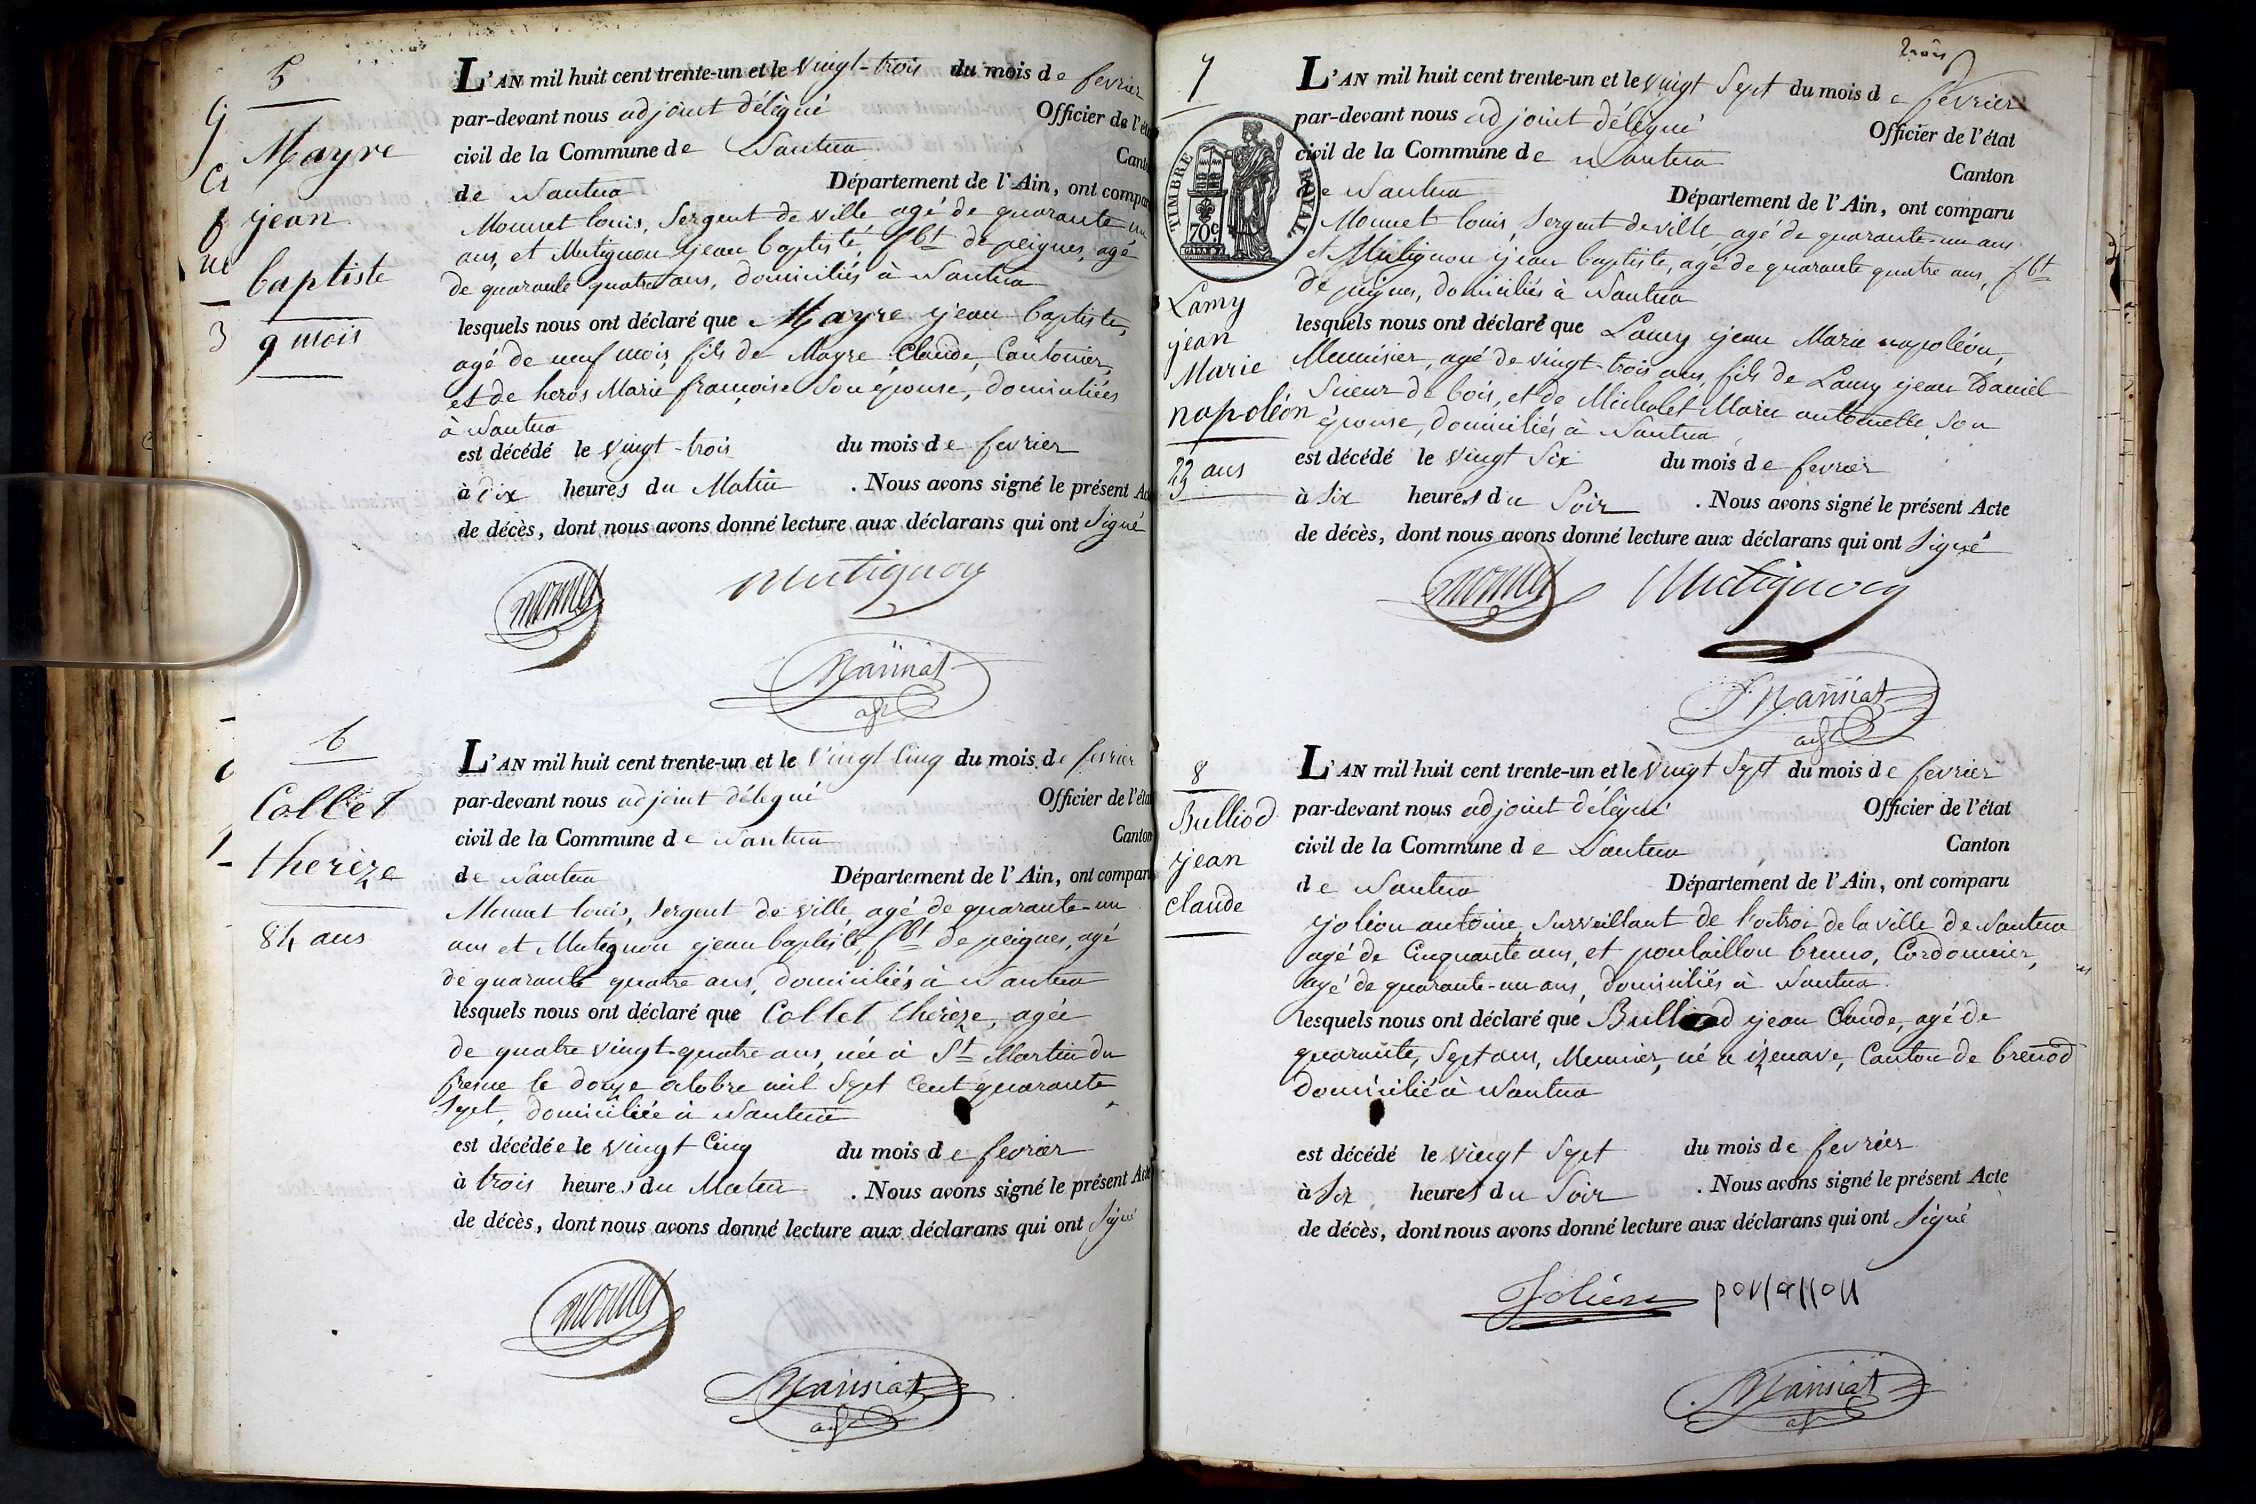 5
Mayre
jean
baptiste
9 mois
L'AN mil huit cent trente-un et le vingt-trois du mois de fevrier
par-devant nous adjoint délégué Officier de l'éta
civil de la Commune de Nantua Canto
de Nantua Département de l'Ain, ont compar
Monnet louis, Sergent de ville agé de quarante un
ans, et Mutignon jean baptiste, fbt de peignes, agé
de quarante quatre ans, domiciliés à Nantua
lesquels nous ont déclaré que Mayre jean baptiste,
agé de neuf mois, fils de Mayre Claude, Cantonier,
et de heros Marie françoise Son épouse, domiciliées
à Nantua
est décédé le vingt-trois du mois de fevrier
à dix heures du Matin . Nous avons signé le présent Act
de décès, dont nous avons donné lecture aux déclarans qui ont Signé
Monnet Mutignon
Mansiat
adj
6
Collet
therèze
84 ans
L'AN mil huit cent trente-un et le vingt Cinq du mois de fevrier
par-devant nous adjoint délégué Officier de l'état
civil de la Commune de Nantua Canton
de Nantua Département de l'Ain, ont comparu
Monnet louis, Sergent de ville, agé de quarante-un
ans et Mutignon jean baptiste, fbt de peignes, agé
de quarante quatre ans, domiciliés à Nantua
lesquels nous ont déclaré que Collet therèze, agée
de quatre vingt-quatre ans, née à St Martin du
fresne le douze octobre mil Sept Cent quarante
Sept, domiciliée à Nantua
est décédée le vingt Cinq du mois de fevrier
à trois heures du Matin . Nous avons signé le présent Acte
de décès, dont nous avons donné lecture aux déclarans qui ont Signé
Monnet
Mansiat
adj
7
TIMBRE ROYAL
70c
Lamy
jean
Marie
napoléon
23 ans
L'AN mil huit cent trente-un et le vingt Sept du mois de fevrier
par-devant nous adjoint délégué Officier de l'état
civil de la Commune de Nantua Canton
de Nantua Département de l'Ain, ont comparu
Monnet louis, Sergent de ville agé de quarante-un ans
et Mutignon jean baptiste, agé de quarante quatre ans, fbt
de peignes, domiciliés à Nantua
lesquels nous ont déclaré que Lamy jean Marie napoléon,
Menuisier, agé de vingt-trois ans, fils de Lamy jean Daniel
Sieur de bois, et de Micholet Marie antoinette Son
épouse, domiciliés à Nantua
est décédé le vingt Six du mois de fevrier
à Six heures du Soir . Nous avons signé le présent Acte
de décès, dont nous avons donné lecture aux déclarans qui ont Signé
Monnet Mutignon
Mansiat
adj
8
Bulliod
jean
claude
L'AN mil huit cent trente-un et le vingt Sept du mois de fevrier
par-devant nous adjoint délégué Officier de l'état
civil de la Commune de Nantua Canton
de Nantua Département de l'Ain, ont comparu
jolion antoine, Surveillant de l'octroi de la ville de Nantua
agé de Cinquante ans, et poulaillon bruno, Cordonnier,
agé de quarante-un ans, domiciliés à Nantua
lesquels nous ont déclaré que Bulliod jean Claude, agé de
quarante, Sept ans, Meunier, né a izenave, Canton de brenod
domicilié à Nantua
est décédé le vingt Sept du mois de fevrier
à Six heures du Soir . Nous avons signé le présent Acte
de décès, dont nous avons donné lecture aux déclarans qui ont Signé
Mansiat
adj